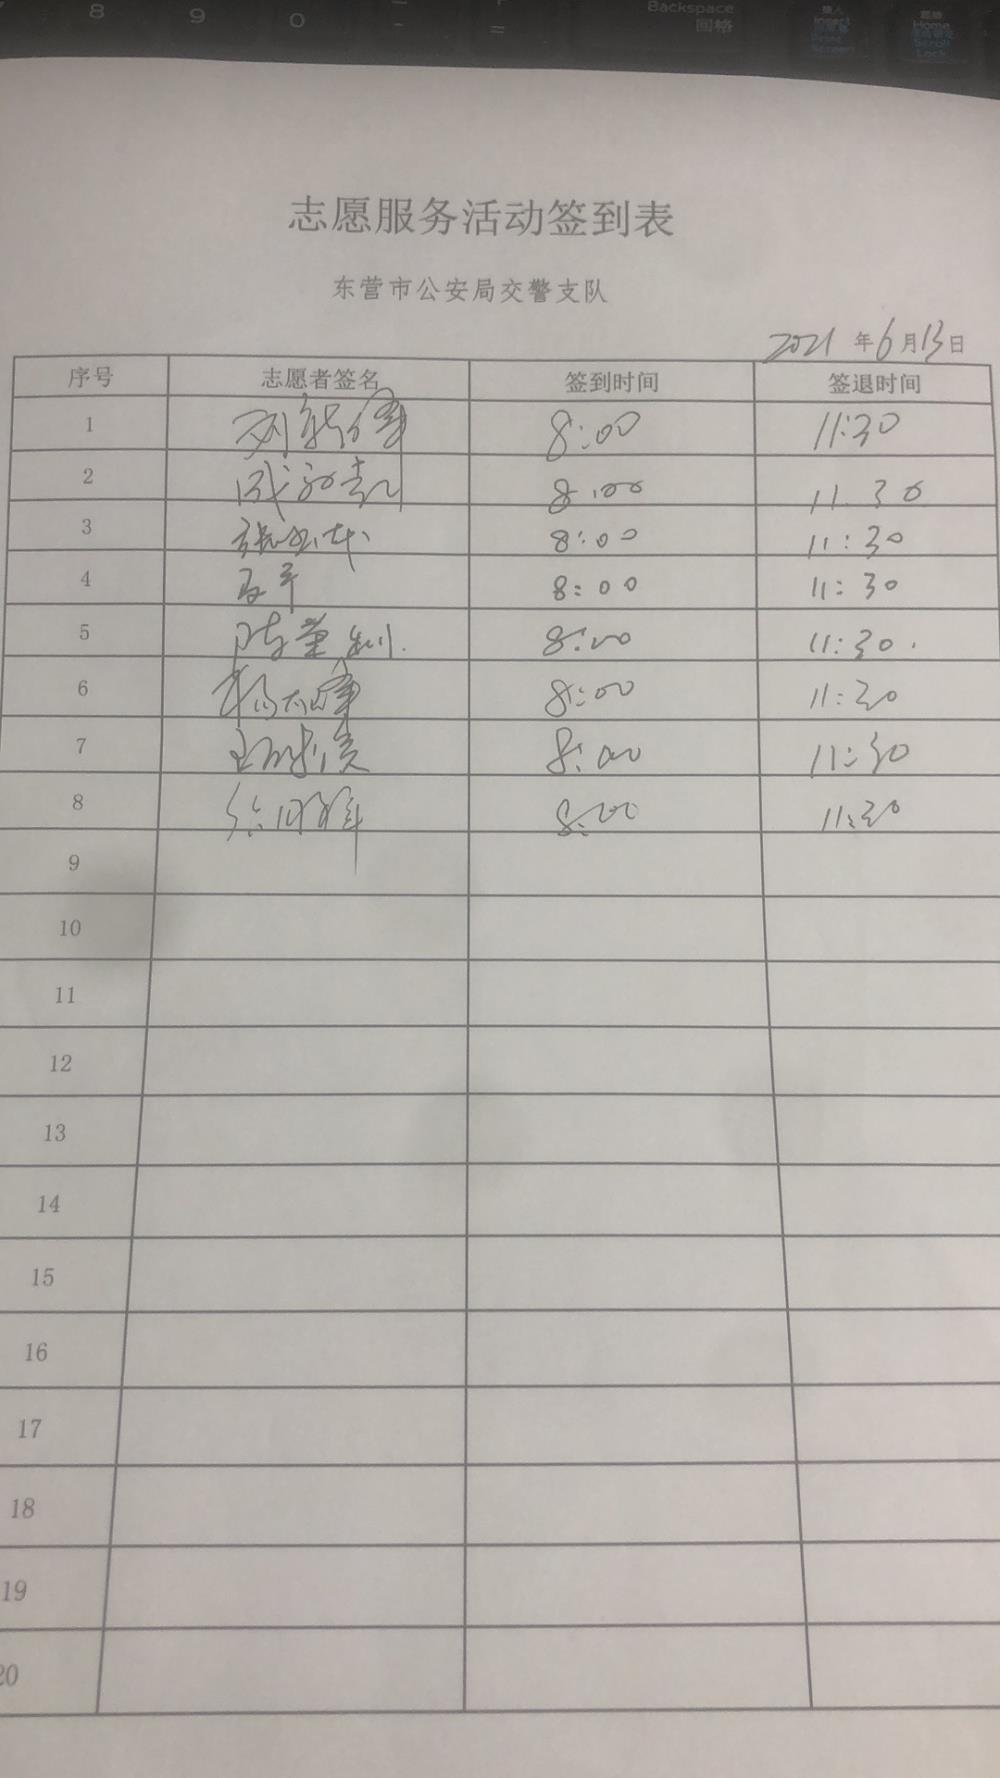 8 9 0 - =
Backspace
回格
插入
Insert
Print
Screen
起始
Home
Scroll
Lock
志愿服务活动签到表
东营市公安局交警支队
2021 年 6 月 13 日
序号 志愿者签名 签到时间 签退时间
1 8:00 11:30
2 8:00 11:30
3 8:00 11:30
4 8:00 11:30
5 8:00 11:30
6 8:00 11:30
7 8:00 11:30
8 8:00 11:30
9
10
11
12
13
14
15
16
17
18
19
20